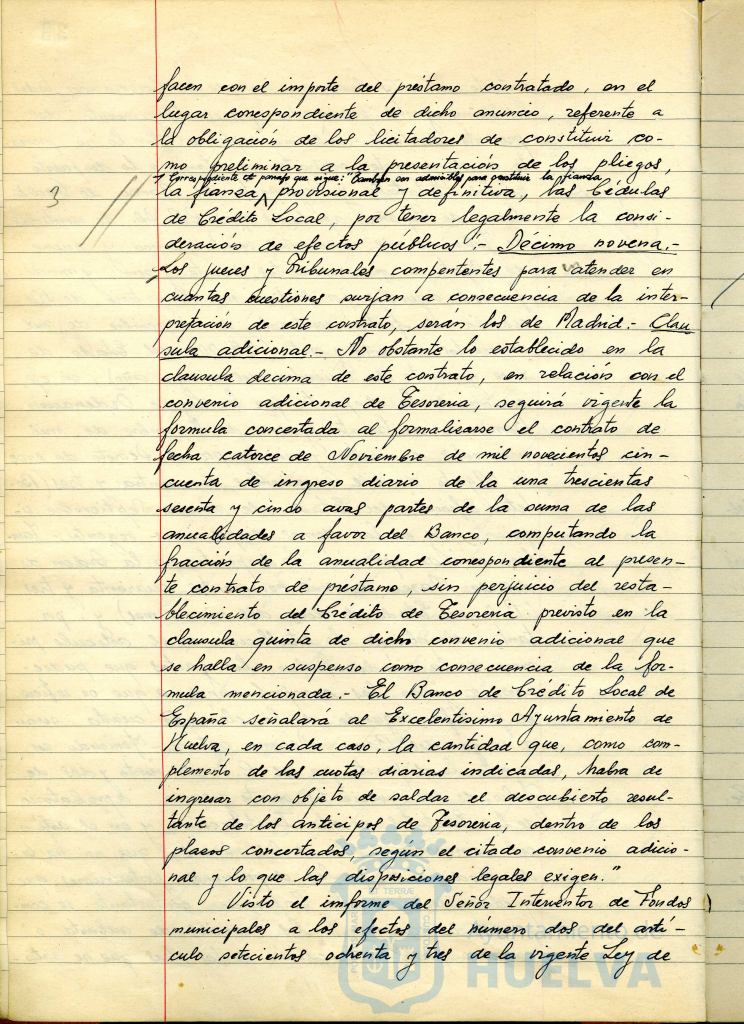 facen con el importe del préstamo contratado, en el
lugar correspondiente de dicho anuncio, referente a
la obligación de los licitadores de constituir co-
mo preliminar a la presentación de los pliegos,
correspondiente el parrafo que sigue: "Tambien son admisibles para constituir la fianza
3 la fianza provisional y definitiva, las Cédulas
de Crédito Local, por tener legalmente la consi-
deración de efectos públicos".- Décimo novena.-
Los jueces y Tribunales compententes para atender en
cuantas cuestiones surjan a consecuencia de la inter-
pretación de este contrato, serán los de Madrid.- Clau
sula adicional.- No obstante lo establecido en la
clausula decima de este contrato, en relación con el
convenio adicional de Tesoreria, seguirá vigente la
formula concertada al formalizarse el contrato de
fecha catorce de Noviembre de mil novecientos cin-
cuenta de ingreso diario de la una trescientas
sesenta y cinco avas partes de la suma de las
anualidades a favor del Banco, computando la
fracción de la anualidad correspondiente al presen-
te contrato de préstamo, sin perjuicio del resta-
blecimiento del Crédito de Tesoreria previsto en la
clausula quinta de dicho convenio adicional que
se halla en suspenso como consecuencia de la for-
mula mencionada.- El Banco de Crédito Local de
España señalará al Excelentisimo Ayuntamiento de
Huelva, en cada caso, la cantidad que, como com-
plemento de las cuotas diarias indicadas, habra de
ingresar con objeto de saldar el descubierto resul-
tante de los anticipos de Tesoreria, dentro de los
plazos concertados, según el citado convenio adicio-
nal y lo que las disposiciones legales exigen."
Visto el imforme del Señor Interventor de Fondos
municipales a los efectos del número dos del artí-
culo setecientos ochenta y tres de la vigente Ley de
HUELVA